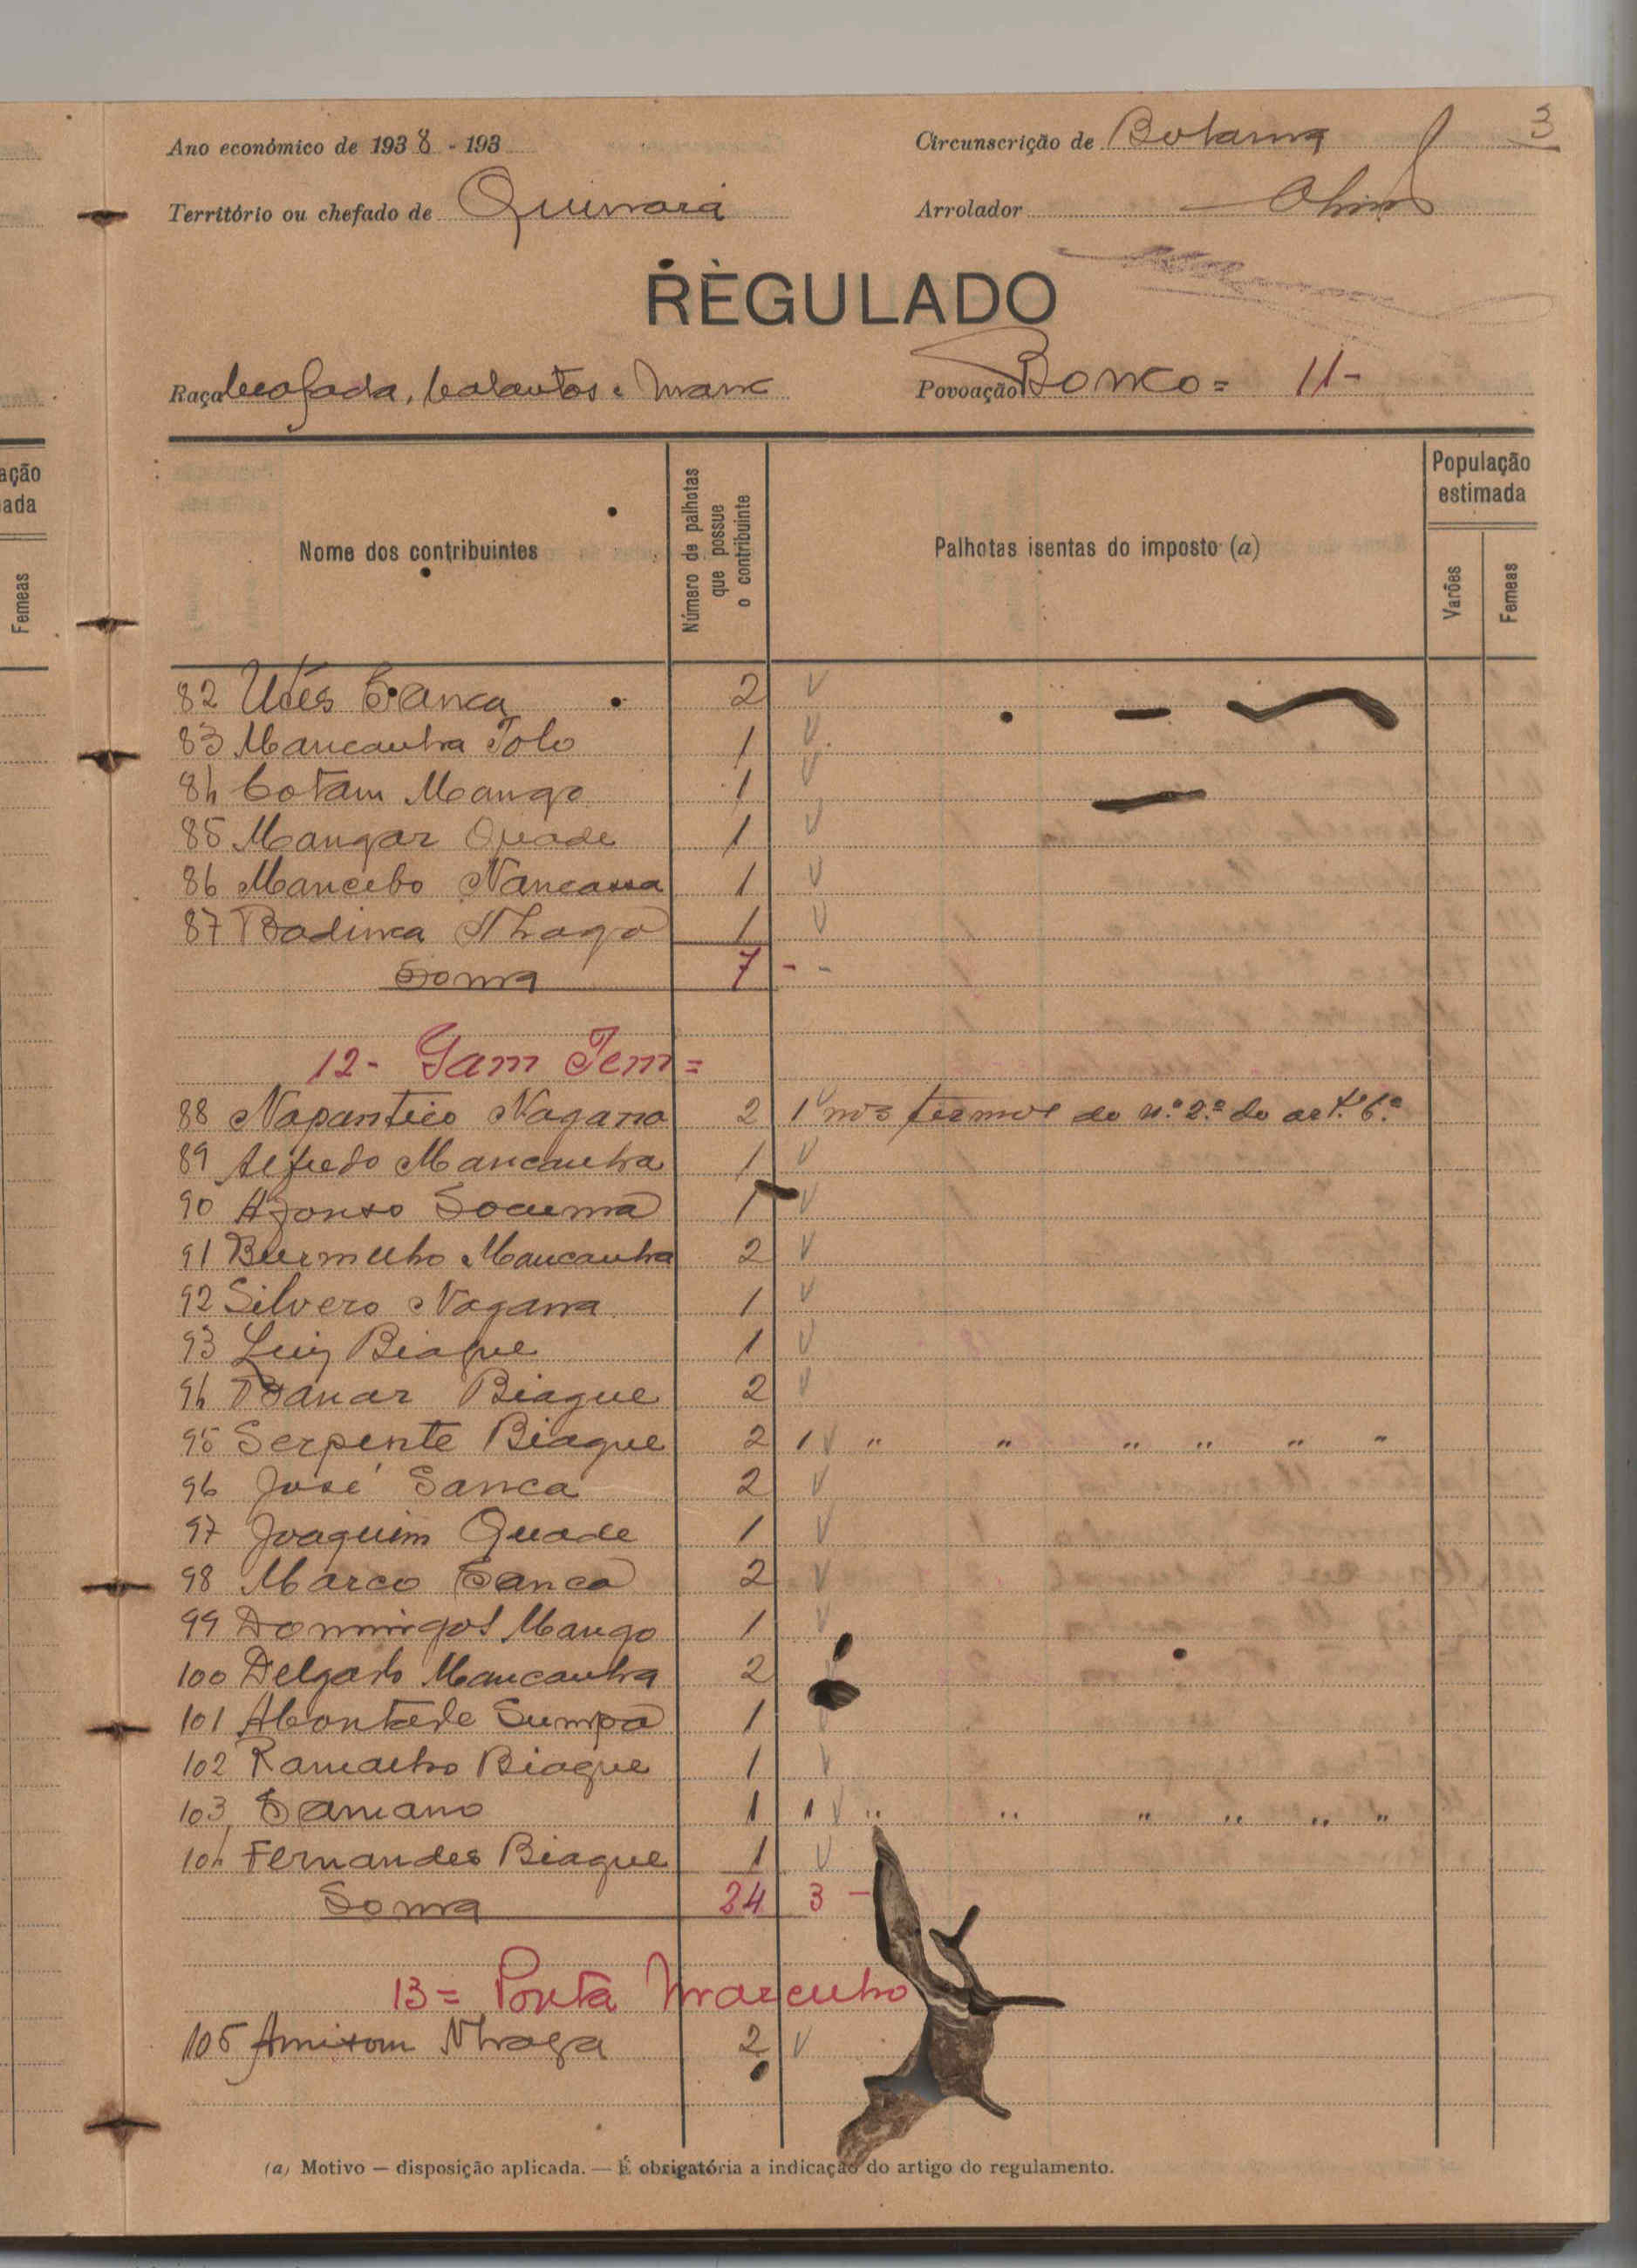 3
Ano económico de 1938 - 193
Circunscrição de Bolama
Território ou chefado de Quinará
Arrolador
REGULADO
Raça beafada, balantas e manc
Povoação Bonco = 11-
ação
ada
Femeas
Nome dos contribuintes
Número de palhotas que possue o contribuinte
Palhotas isentas do imposto (a)
População estimada
Varões
Femeas
82 Sanca 2 v
83 Mancanha Tolo 1 v
84 Cotam Mango 1 v
85 Mangar Quade 1 v
86 Mancebo Nancassa 1 v
87 Badinca Nhaga 1 v
Soma 7 - -
12- Gam Tem =
88 Napantico Nagana 2 1 v nos termos do n.º 2.º do art.º 6.º
89 Alfredo Mancanha 1 v
90 Afonso Socuma 1 v
91 Mancanha 2 v
92 Silvero Nagana 1 v
93 Luiz Biague 1 v
94 Banar Biague 2 v
95 Serpente Biague 2 1 v " " " " " "
96 José Sanca 2 v
97 Joaquim Quade 1 v
98 Marco Sanca 2 v
99 Domingos Mango 1 v
100 Delgado Mancanha 2
101 Sumpa 1 v
102 Ramalho Biague 1 v
103 Samano 1 1 v " " " " " "
104 Fernandes Biague 1 v
Soma 24 3 -
13 = Ponta
105 Nhaga 2 v
(a) Motivo — disposição aplicada. — É obrigatória a indicação do artigo do regulamento.